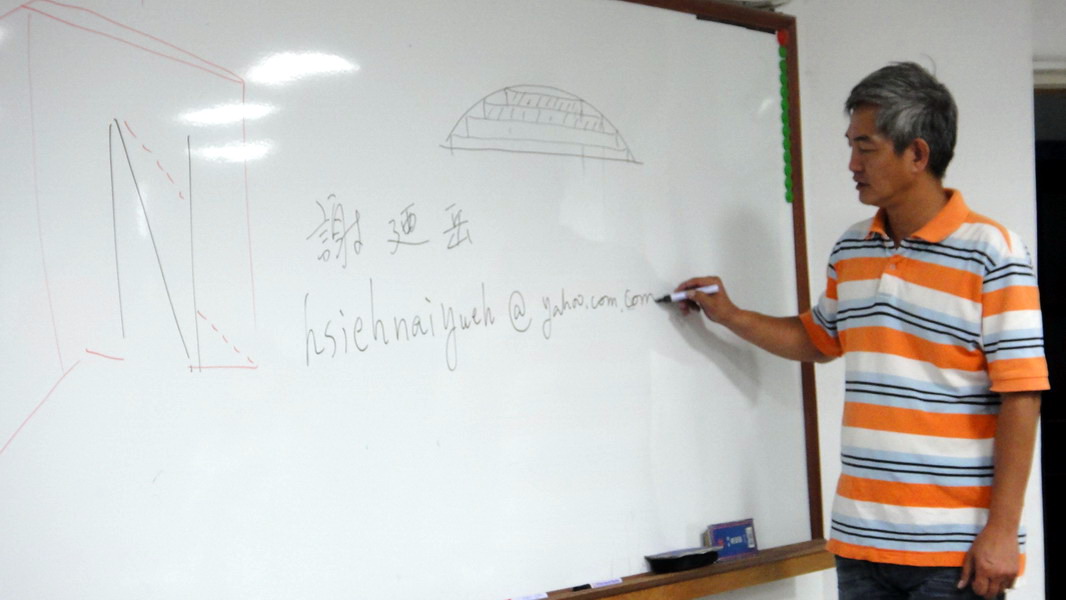 謝廼岳
hsiehnaiyueh@yahoo.com.com